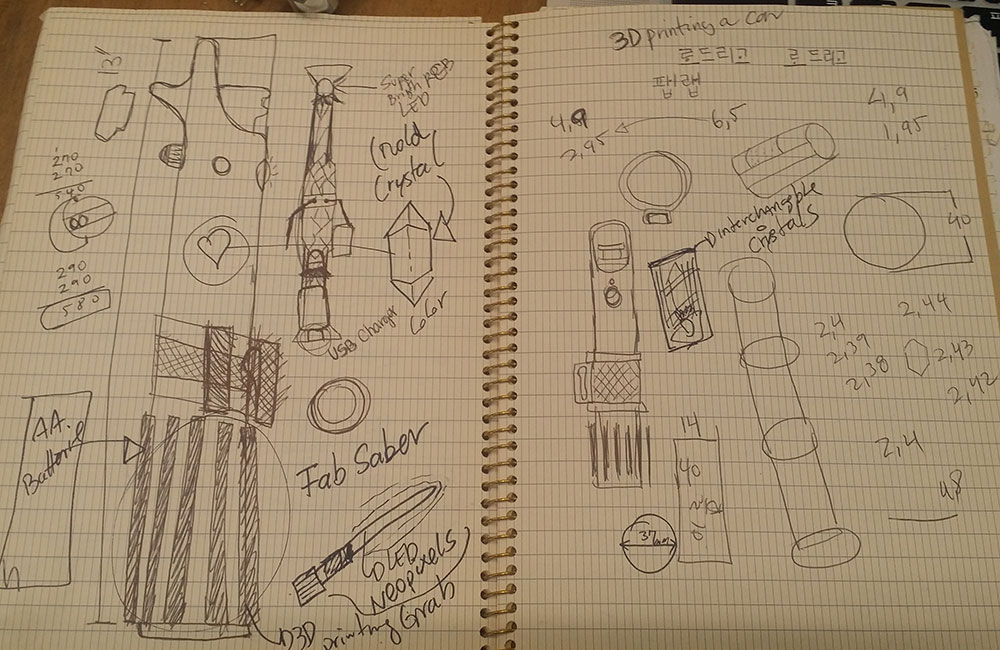 13
Super
Bright RGB
LED
270
270
540
(Mold
Crystal
290
290
580
USB Charger
Color
AA.
Batterie
Fab Saber
LED
Neopixels
3D
printing Grab
3D printing a Can
로드리고 로드리고
팹랩
4,9
2,95
6,5
4,9
1,95
Dinterchangable
Crystals
40
2,4
2,39
2,38
2,44
2,43
2,42
14
40
2,4
48
37mm